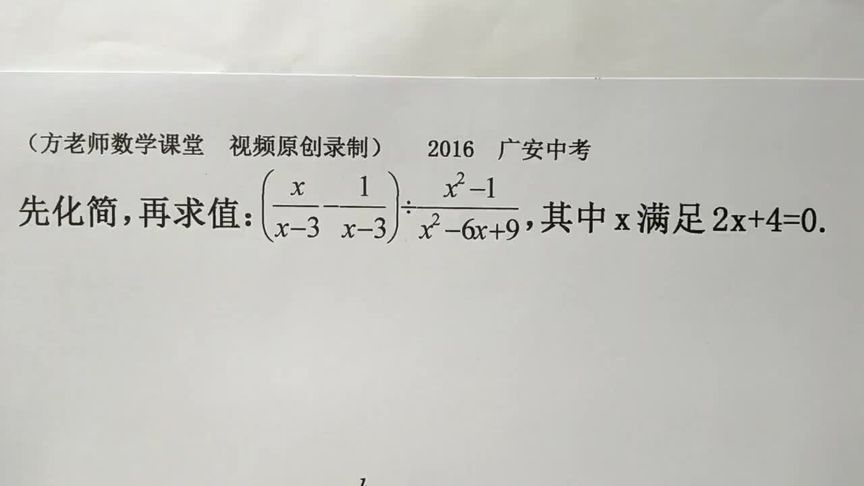 （方老师数学课堂 视频原创录制） 2016 广安中考
先化简，再求值：(x/(x−3) − 1/(x−3)) ÷ (x²−1)/(x²−6x+9)，其中 x 满足 2x+4=0.